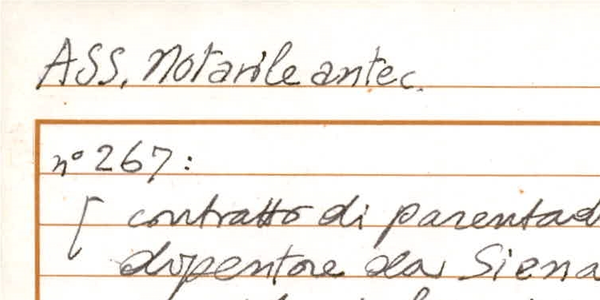 ASS, Notarile antec.
n° 267:
[ contratto di parentad
dipentore da Siena